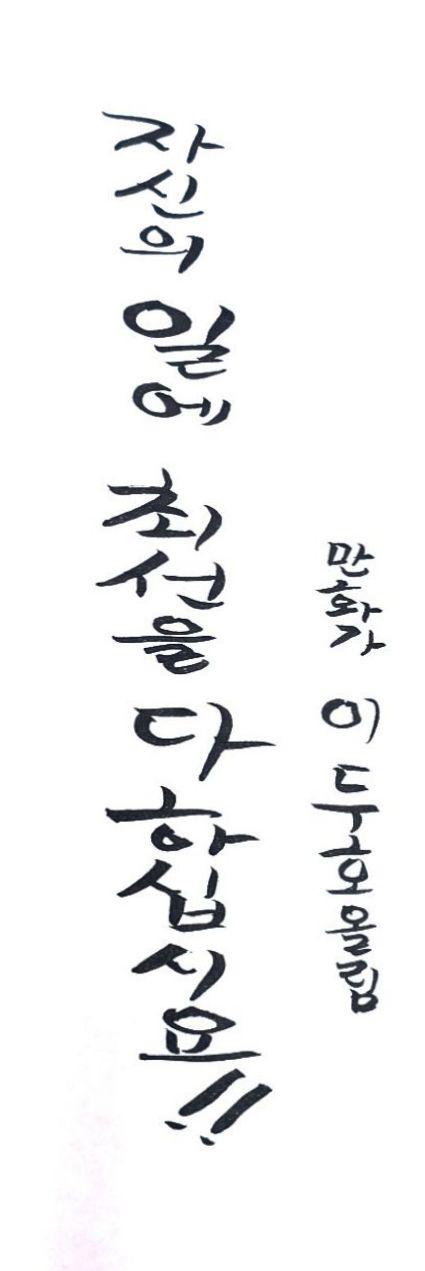 자신의 일에 최선을 다하십시요!!
만화가 이두호올림